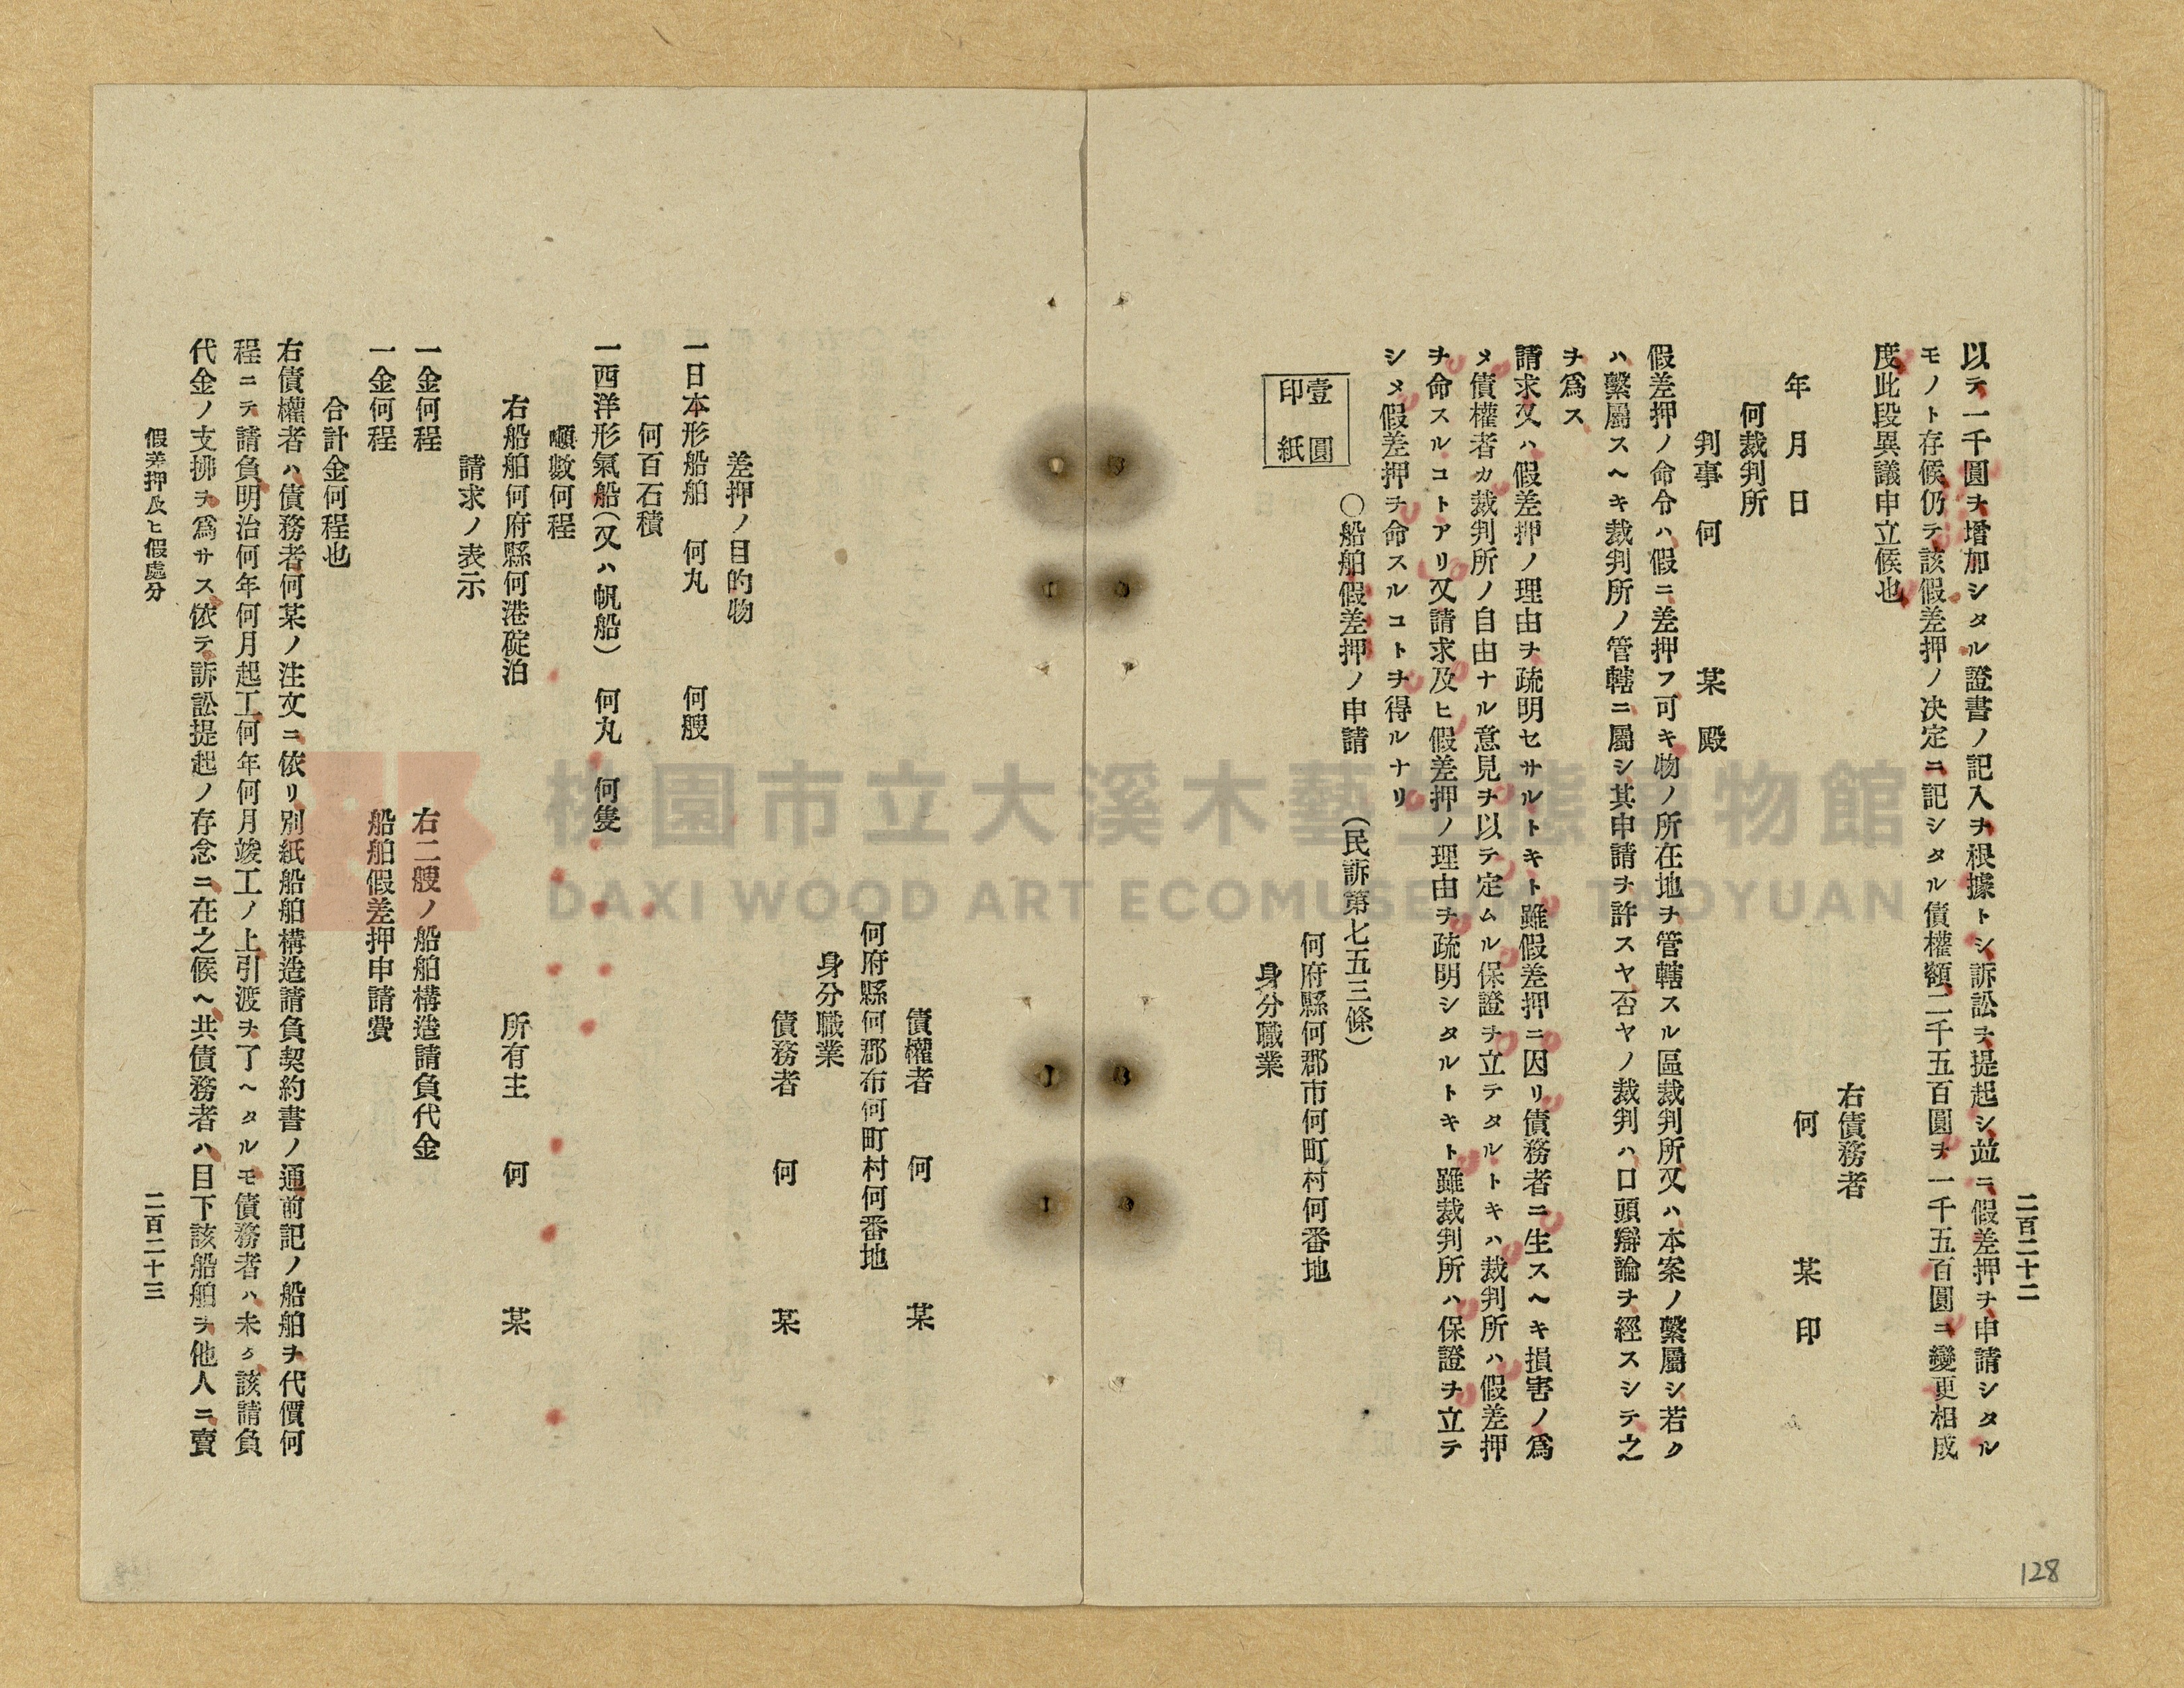 二百二十二
以テ一千圓ヲ增加シタル證書ノ記入ヲ根據トシ訴訟ヲ提起シ並ニ假差押ヲ申請シタル
モノト存候仍テ該假差押ノ決定ニ記シタル債權額二千五百圓ヲ一千五百圓ニ變更相成
度此段異議申立候也
右債務者
年 月 日 何 某 印
何裁判所
判事 何 某 殿
假差押ノ命令ハ假ニ差押フ可キ物ノ所在地ヲ管轄スル區裁判所又ハ本案ノ繫屬シ若ク
ハ繫屬スヘキ裁判所ノ管轄ニ屬シ其申請ヲ許スヤ否ヤノ裁判ハ口頭辯論ヲ經スシテ之
ヲ爲ス
請求又ハ假差押ノ理由ヲ疏明セサルトキト雖假差押ニ因リ債務者ニ生スヘキ損害ノ爲
メ債權者カ裁判所ノ自由ナル意見ヲ以テ定ムル保證ヲ立テタルトキハ裁判所ハ假差押
ヲ命スルコトアリ又請求及ヒ假差押ノ理由ヲ疏明シタルトキト雖裁判所ハ保證ヲ立テ
シメ假差押ヲ命スルコトヲ得ルナリ
○船舶假差押ノ申請 (民訴第七五三條)
壹圓
印紙
何府縣何郡市何町村何番地
身分職業
債權者 何 某
何府縣何郡布何町村何番地
身分職業
債務者 何 某
差押ノ目的物
一日本形船舶 何丸 何艘
何百石積
一西洋形氣船(又ハ帆船) 何丸 何隻
噸數何程
右船舶何府縣何港碇泊 所有主 何 某
請求ノ表示
一金何程 右二艘ノ船舶構造請負代金
一金何程 船舶假差押申請費
合計金何程也
右債權者ハ債務者何某ノ注文ニ依リ別紙船舶構造請負契約書ノ通前記ノ船舶ヲ代價何
程ニテ請負明治何年何月起工何年何月竣工ノ上引渡ヲ了ヘタルモ債務者ハ未タ該請負
代金ノ支拂ヲ爲サス依テ訴訟提起ノ存念ニ在之候ヘ共債務者ハ目下該船舶ヲ他人ニ賣
假差押及ヒ假處分 二百二十三
128
桃園市立大溪木藝生態博物館
DAXI WOOD ART ECOMUSEUM, TAOYUAN